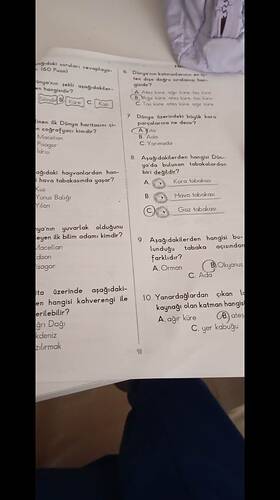 aşağıdaki soruları cevaplayın
(60 Puan)
ünya'nın şekli aşağıdakiler-
en hangisidir?
Silindir B. Küre C. Kare
inen ilk Dünya haritasını çi-
n coğrafyacı kimdir?
Macellan
Pisagor
İdrisi
ağıdaki hayvanlardan han-
i hava tabakasında yaşar?
Kuş
Yunus Balığı
Yılan
nya'nın yuvarlak olduğunu
eyen ilk bilim adamı kimdir?
Macellan
dison
isagor
ita üzerinde aşağıdaki-
en hangisi kahverengi ile
erilebilir?
ğrı Dağı
kdeniz
zılırmak
6. Dünya'nın katmanlarının
ten dışa doğru sıralanışı han-
gisidir?
A. Ateş küre, ağır küre, taş küre
B. Ağır küre, ateş küre, taş küre
C. Taş küre, ateş küre, ağır küre
7. Dünya üzerindeki büyük kara
parçalarına ne denir?
A.
B. Ada
C. Yarımada
8. Aşağıdakilerden hangisi Dün-
ya'da bulunan tabakalardan
biri değildir?
A. Kara tabakası
B. Hava tabakası
C. Gaz tabakası
9. Aşağıdakilerden hangisi bu-
lunduğu tabaka açısından
farklıdır?
A. Orman B. Okyanus
C. Ada
10. Yanardağlardan çıkan
kaynağı olan katman hangisi
A. ağır küre B. ateş
C. yer kabuğu